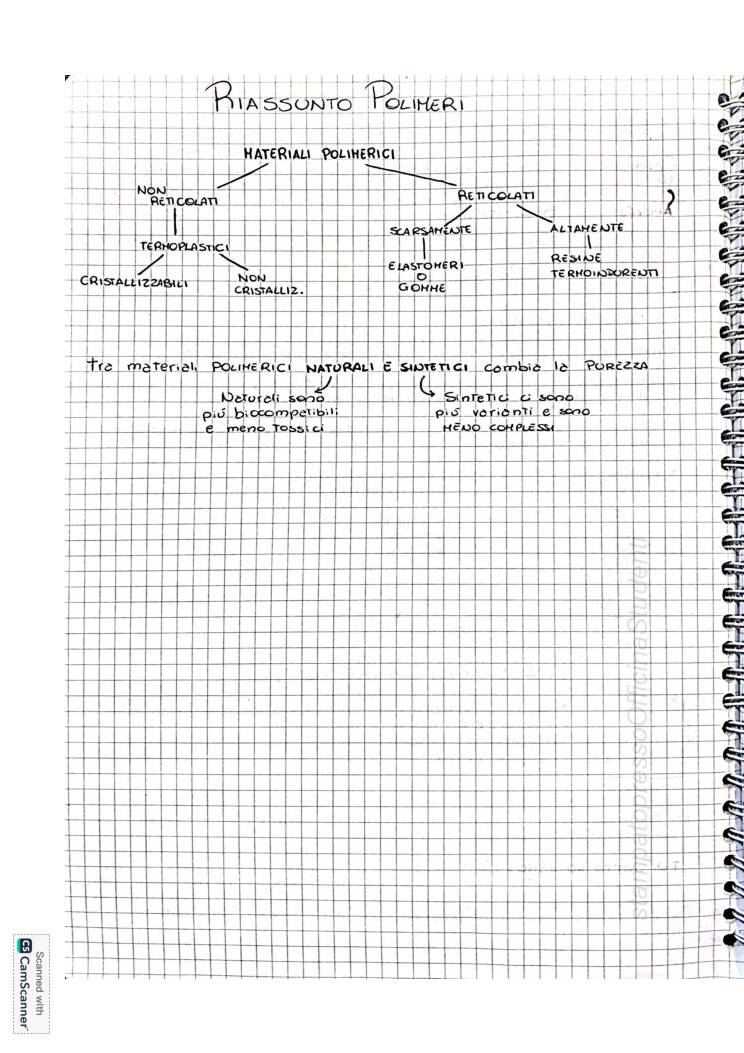 RIASSUNTO POLIMERI
MATERIALI POLIMERICI
NON
RETICOLATI
RETICOLATI
TERMOPLASTICI
SCARSAMENTE
ALTAMENTE
CRISTALLIZZABILI
NON
CRISTALLIZ.
ELASTOMERI
O
GOMME
RESINE
TERMOINDURENTI
?
tra materiali POLIMERICI NATURALI E SINTETICI cambia la PUREZZA
Naturali sono
più biocompatibili
e meno tossici
Sintetici ci sono
più varianti e sono
MENO COMPLESSI
stampatopressoOfficinaStudenti
Scanned with
CS CamScanner